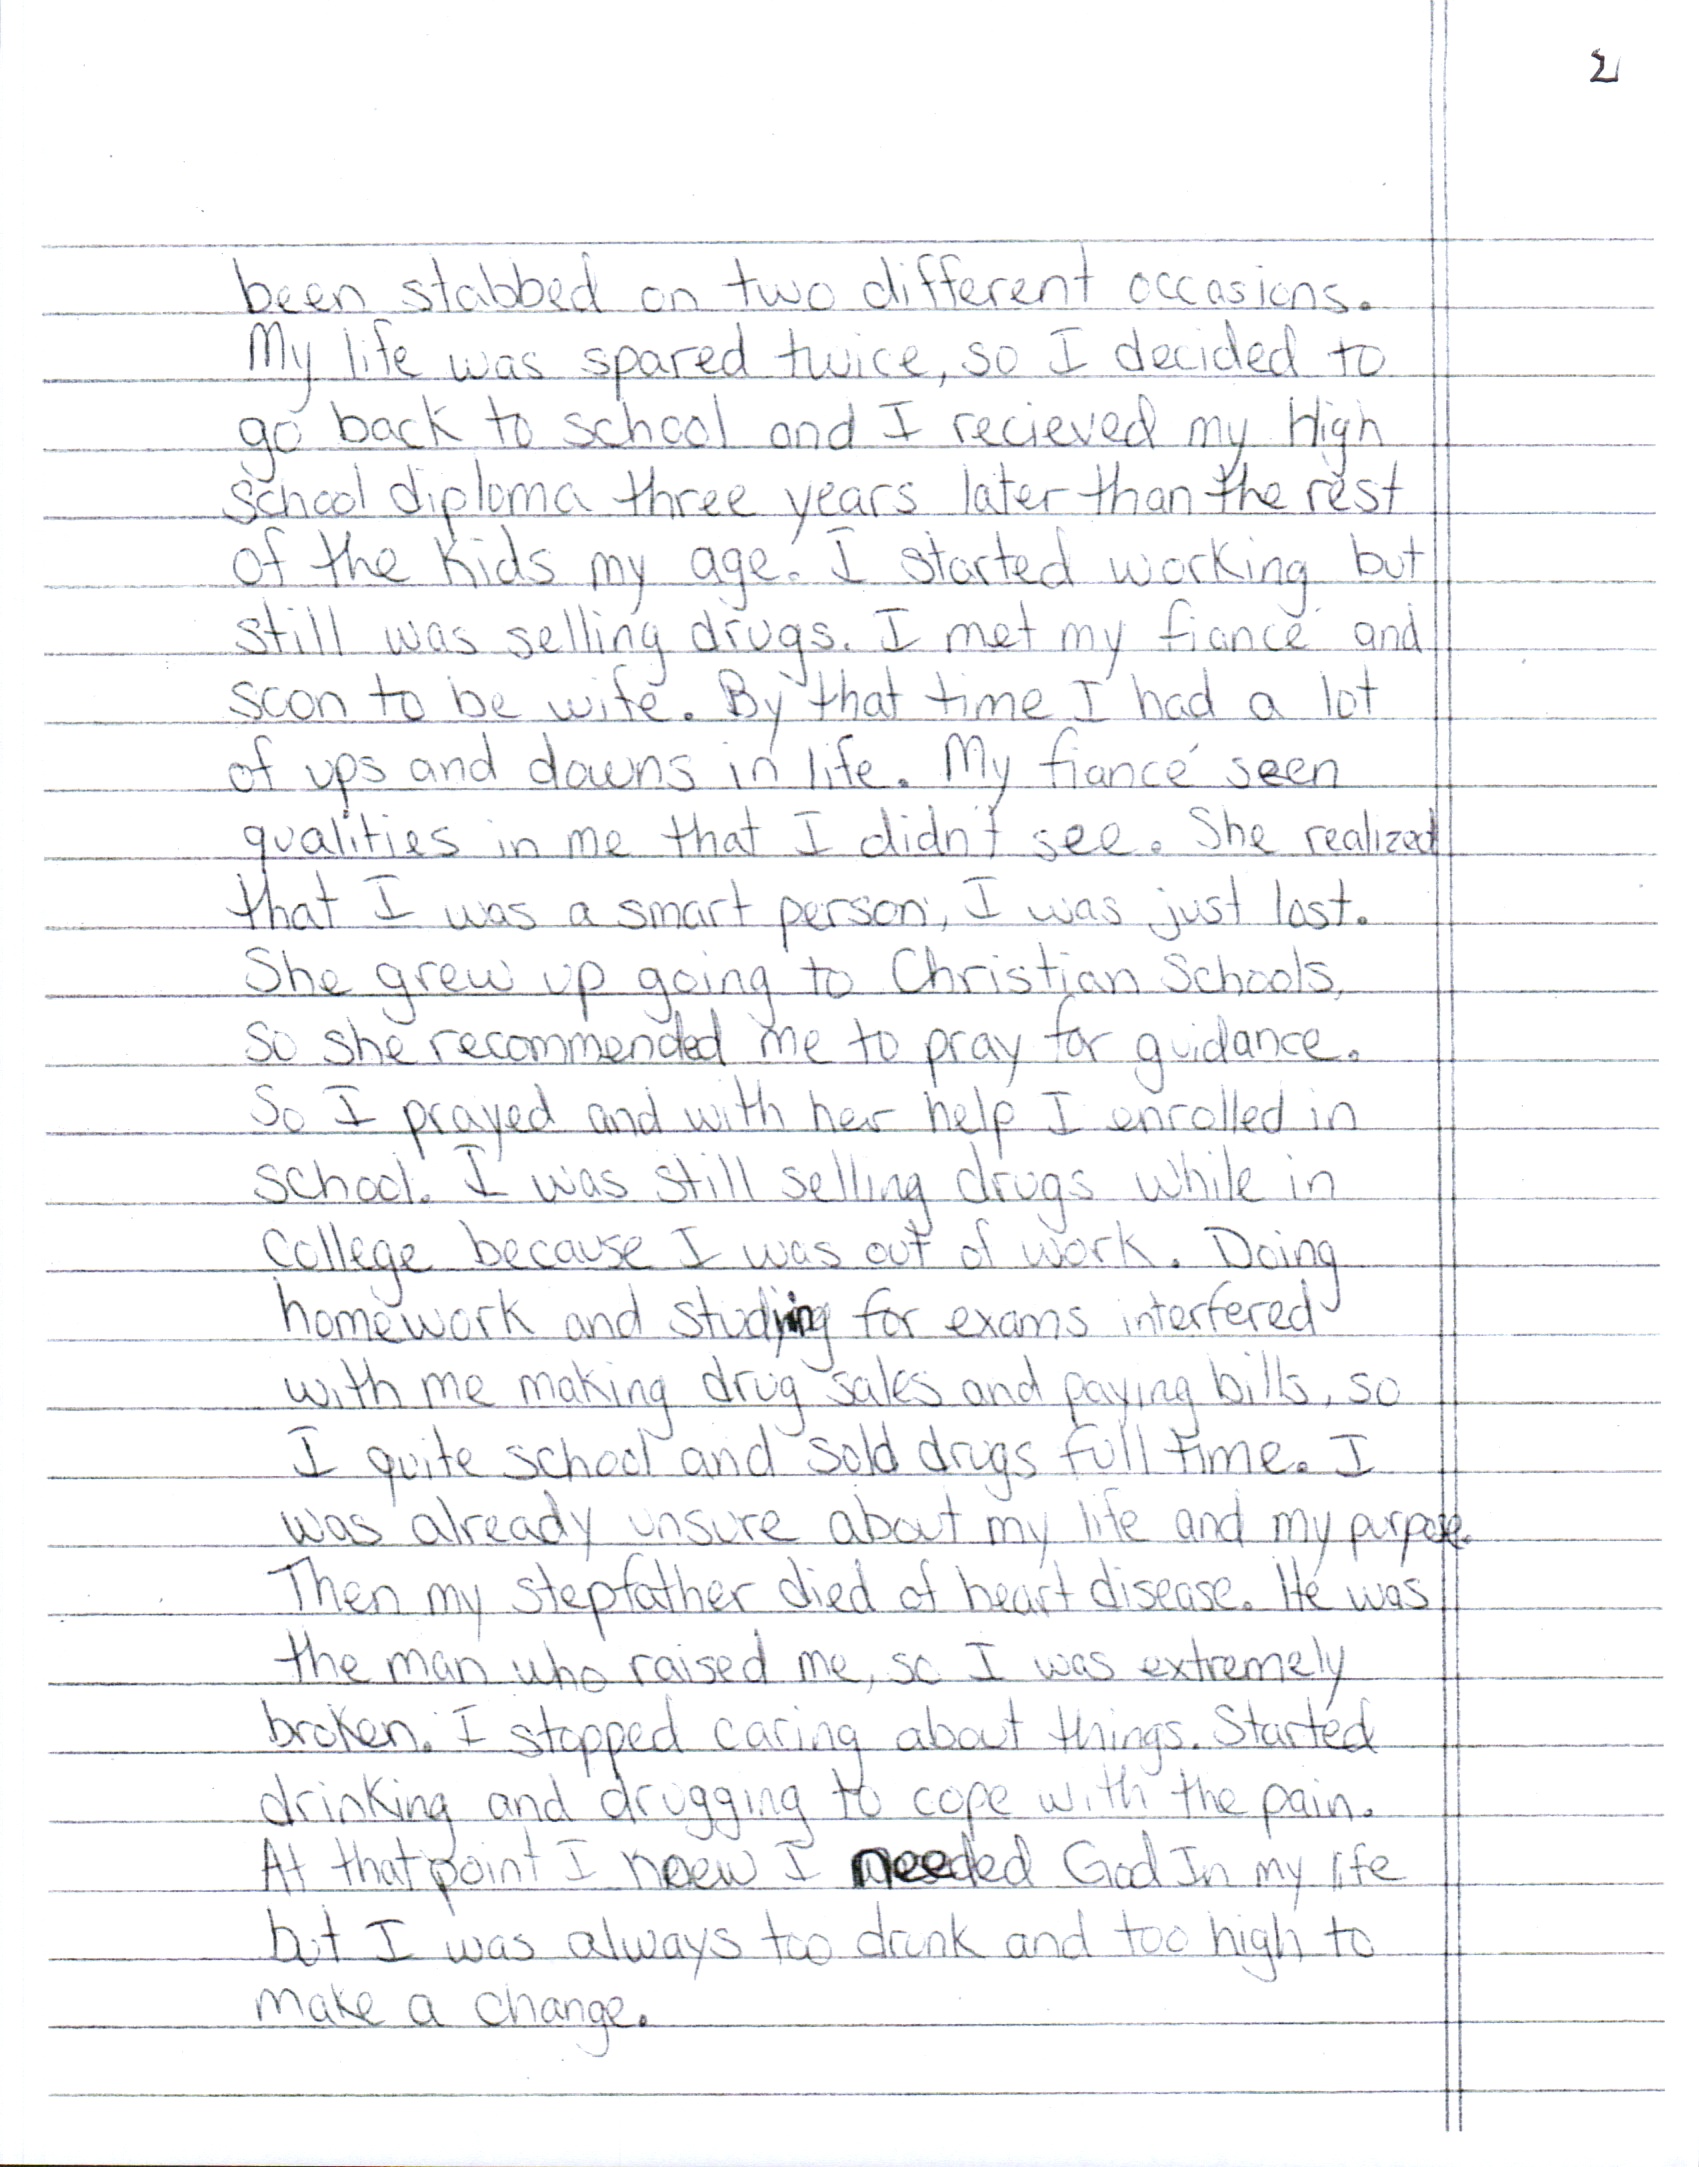 2
been stabbed on two different occasions.
My life was spared twice, so I decided to
go back to school and I recieved my High
School diploma three years later than the rest
of the kids my age. I started working but
still was selling drugs. I met my fiancé and
soon to be wife. By that time I had a lot
of ups and downs in life. My fiancé seen
qualities in me that I didn't see. She realized
that I was a smart person, I was just lost.
She grew up going to Christian Schools,
So she recommended me to pray for guidance.
So I prayed and with her help I enrolled in
school. I was still selling drugs while in
College because I was out of work. Doing
homework and studying for exams interfered
with me making drug sales and paying bills, so
I quite school and sold drugs full time. I
was already unsure about my life and my purpose.
Then my stepfather died of heart disease. He was
the man who raised me, so I was extremely
broken. I stopped caring about things. Started
drinking and drugging to cope with the pain.
At that point I knew I needed God In my life
but I was always too drunk and too high to
make a change.